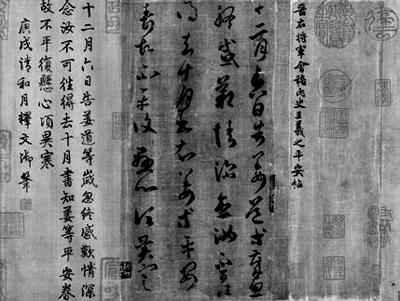 晋右將軍會稽內史王羲之平安帖
十二月六日告姜道等歲忽
終感歎情深念汝不可往
得去十月書知姜等平安
春故不平復懸心頃異寒
十二月六日告姜道等歲忽終感歎情深
念汝不可往得去十月書知姜等平安春
故不平復懸心頃異寒
庚戌清和月釋文御筆